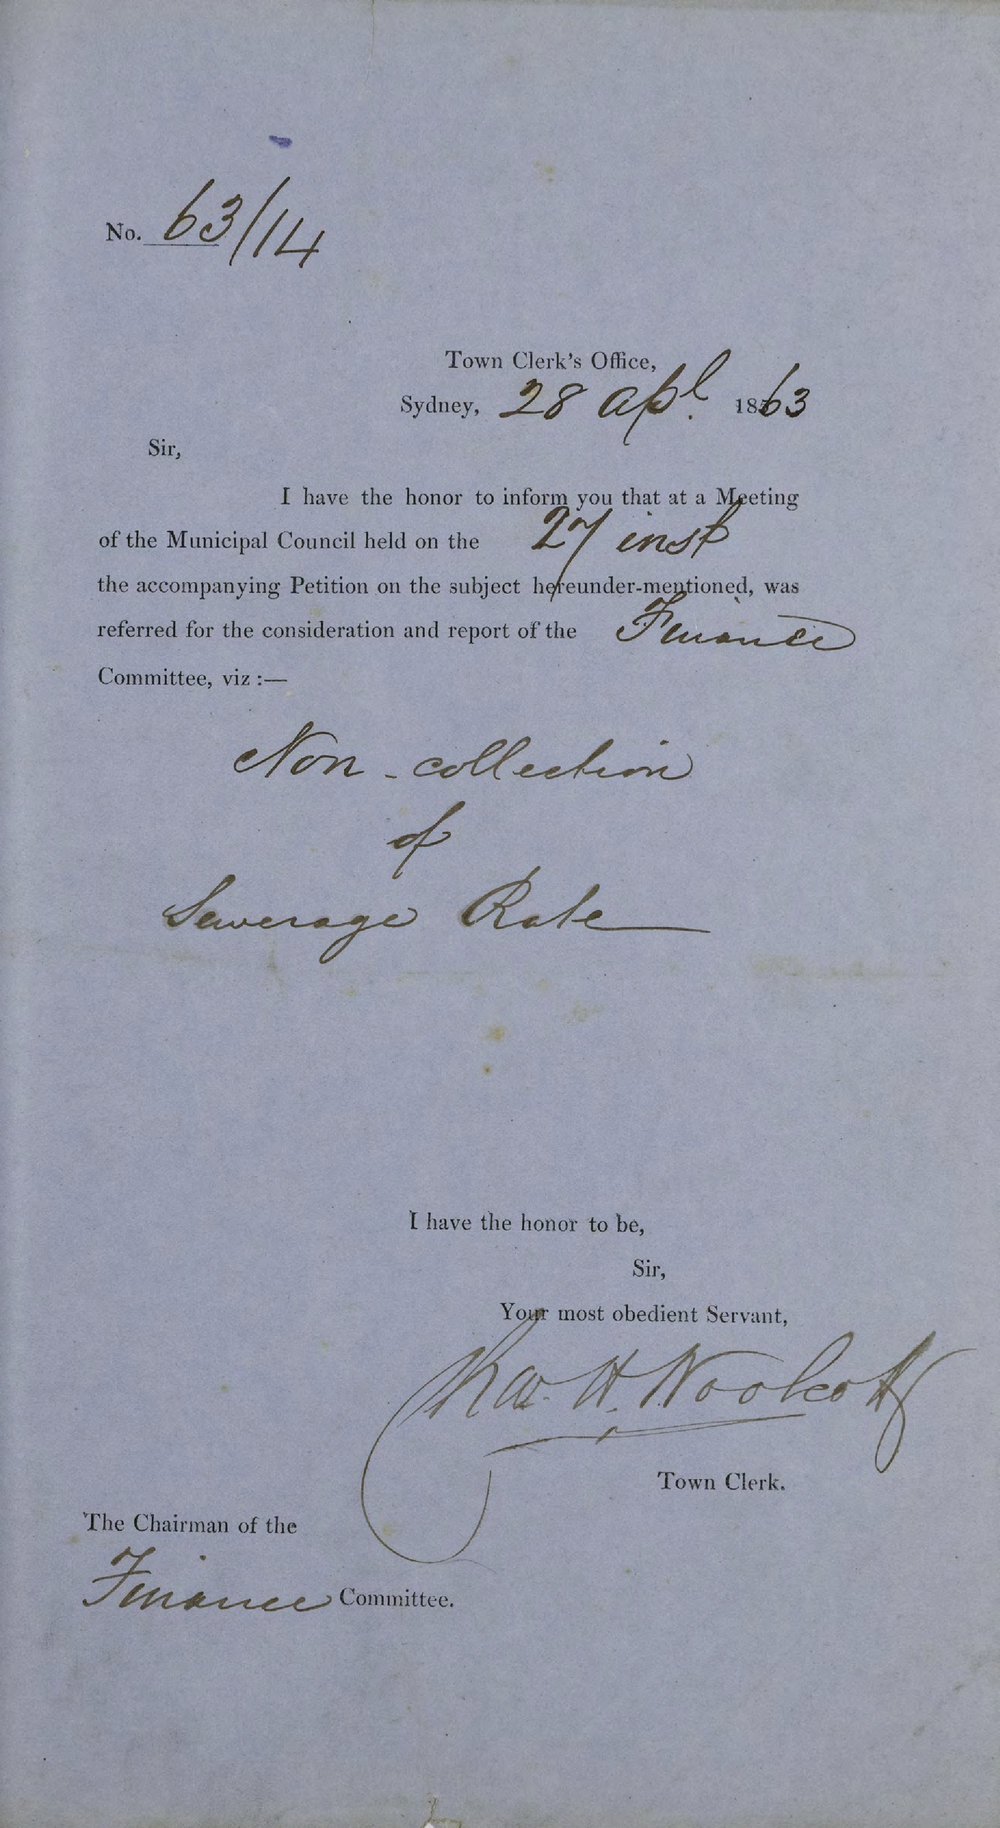 No. 63/14
Town Clerk's Office,
Sydney, 28 Apl. 1863
Sir,
I have the honor to inform you that at a Meeting
of the Municipal Council held on the 27 inst
the accompanying Petition on the subject hereunder-mentioned, was
referred for the consideration and report of the Finance
Committee, viz :—
Non-collection
of
Sewerage Rate
I have the honor to be,
Sir,
Your most obedient Servant,
Chas. H. Woolcott
Town Clerk.
The Chairman of the
Finance Committee.